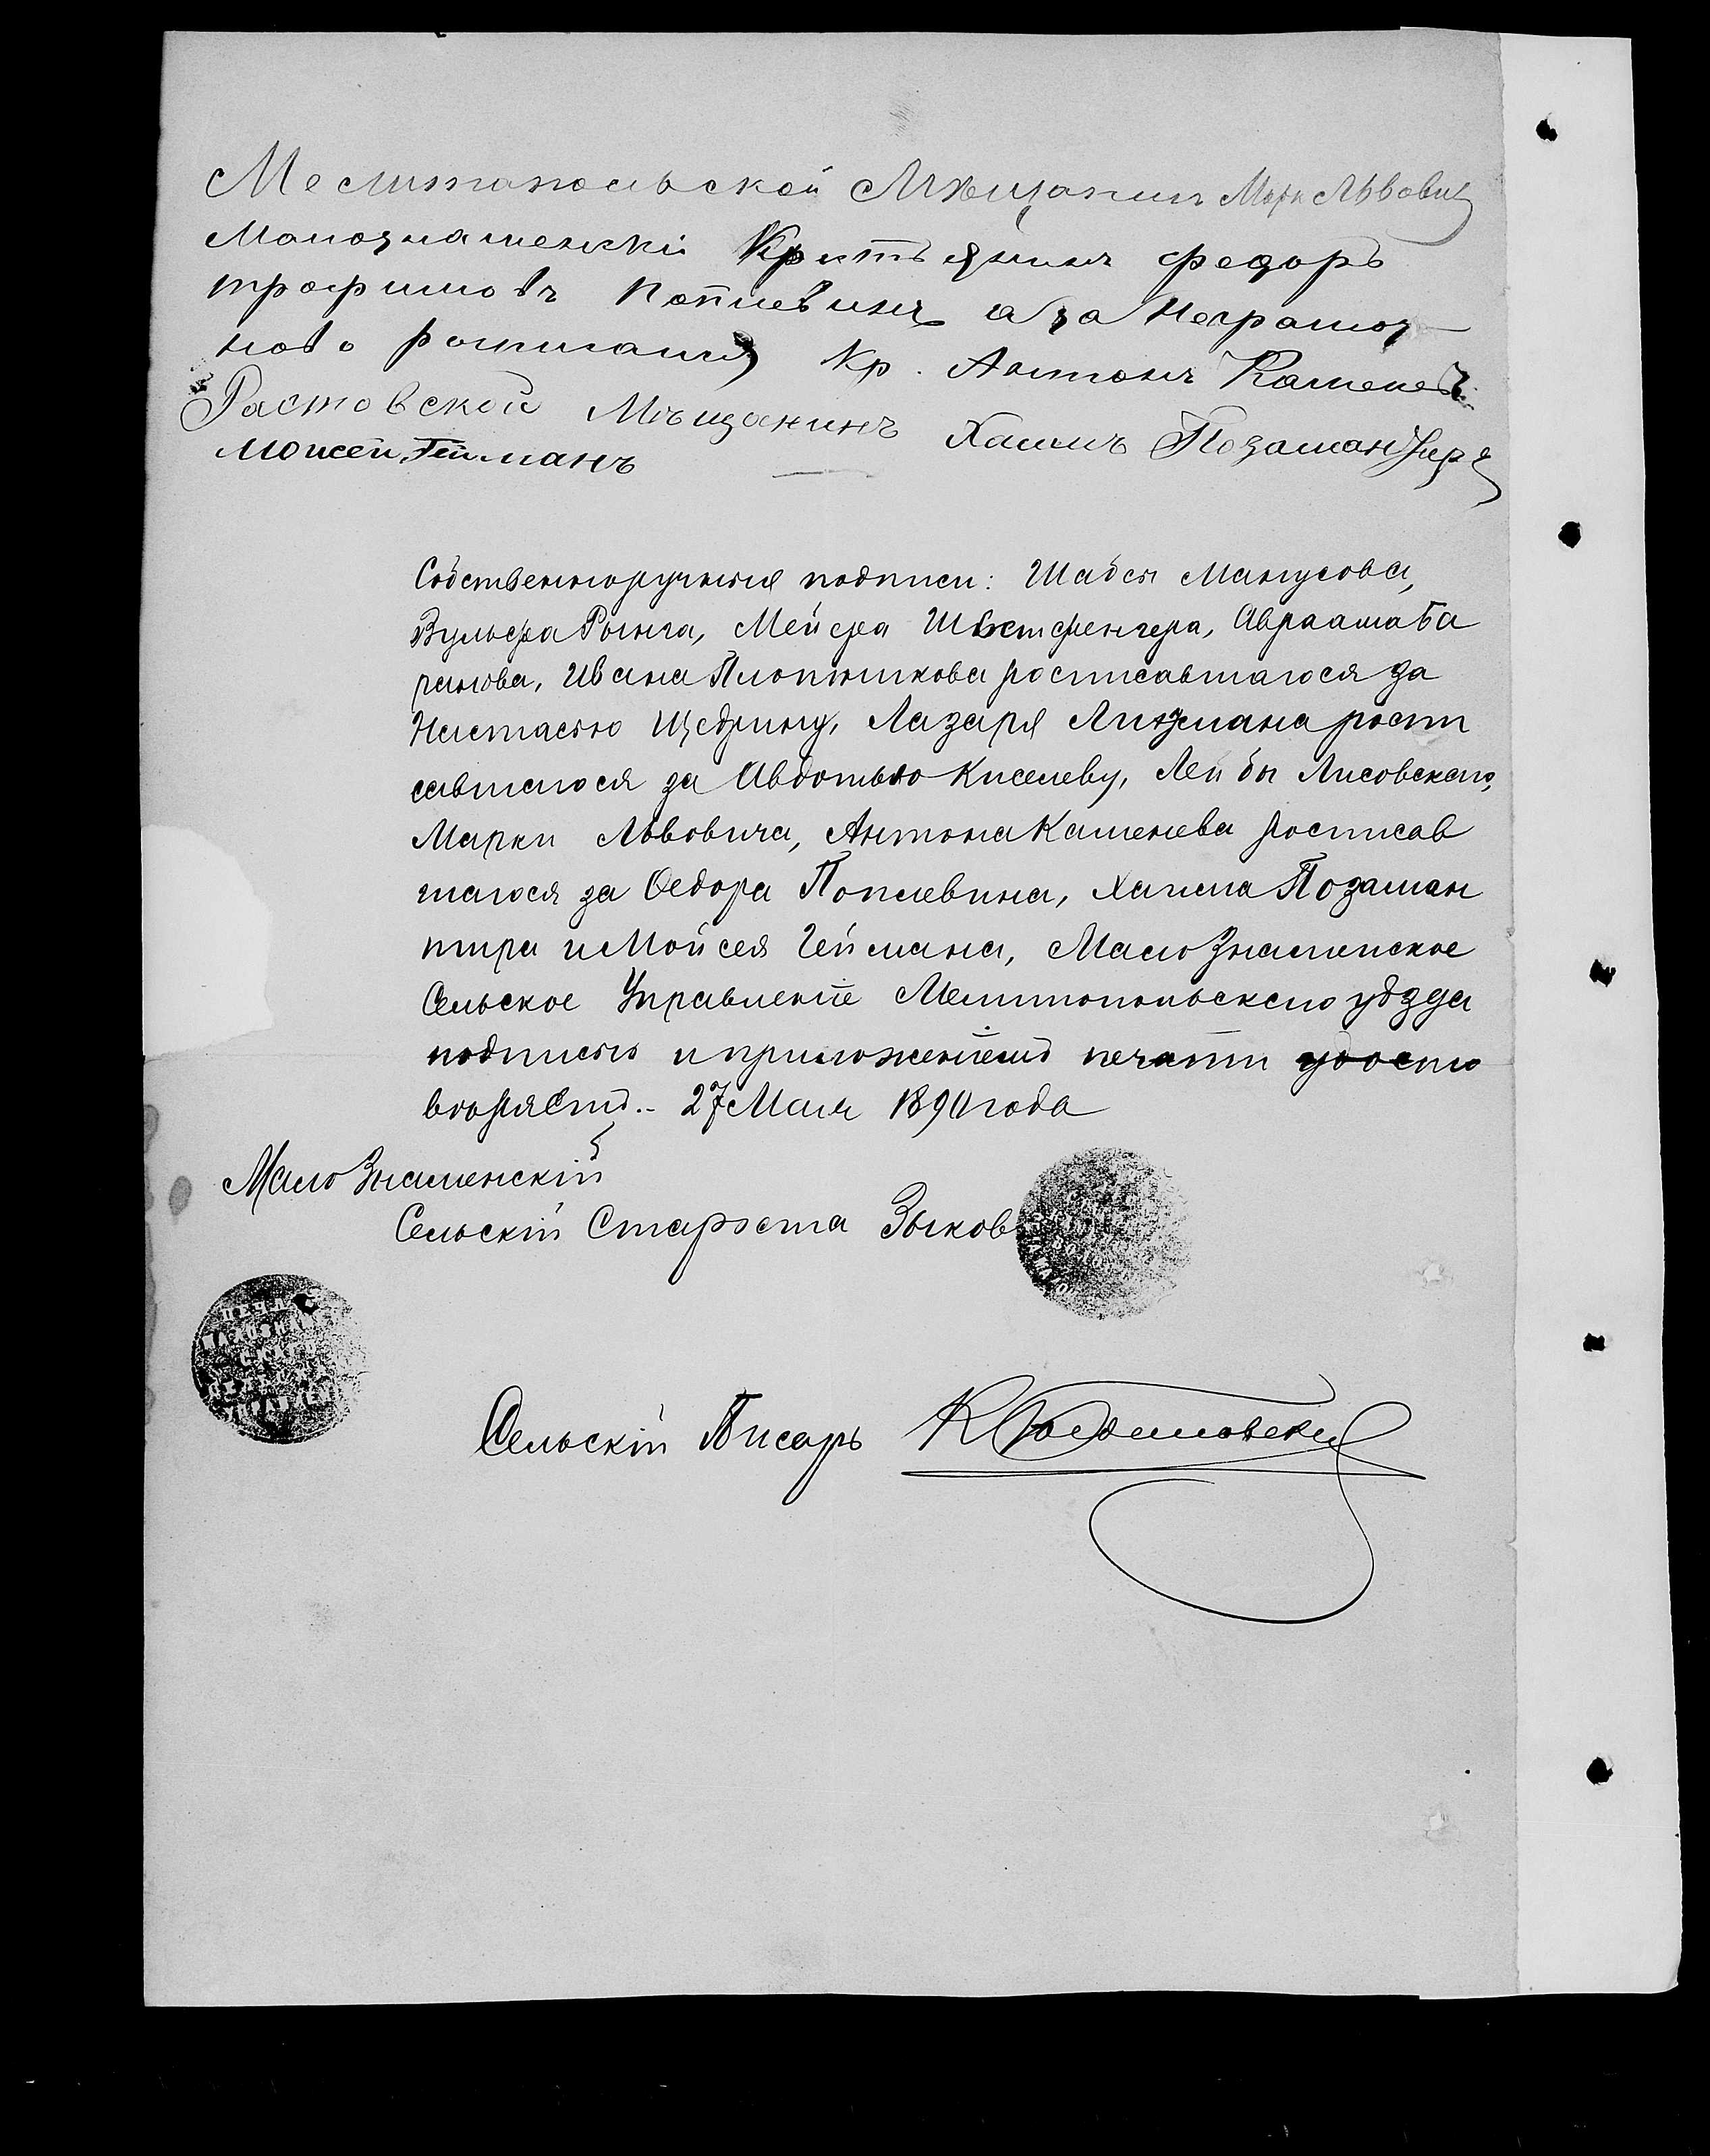 Мелитопольской Мещанин Марк Львович
Малознаменскі Кристьянин федоръ
трофимовъ Поплевинъ а за Неграмоз-
ново росписался Кр. Антонъ Каменев
Растовской Мъщанинъ Хаимъ Позамантиръ
Мойсей Гейманъ
Собственноручныя подписи: Шабся Манусова,
Вульфа Рынга, Мейера Шветфингера, Авраама Ба
ранова, Ивана Плотникова росписавшагося за
Настасью Щедрину, Лазаря Лихмана роспи
савшагося за Авдотью Киселеву, Лейбы Лисовскаго,
Марки Львовича, Антона Каменева росписав
шагося за Ѳедора Поплевина, Хаима Позаман
тира и Мойсея Геймана, Мало Знаменское
Сельское Управленіе Мелитопольскаго уѣзда
подписью и приложеніемъ печати удосто
вѣряетъ.- 27 Мая 1890 года
Мало Знаменскій
Сельскій Староста Зыков
ПЕЧАТЬ
Сельскій Писарь